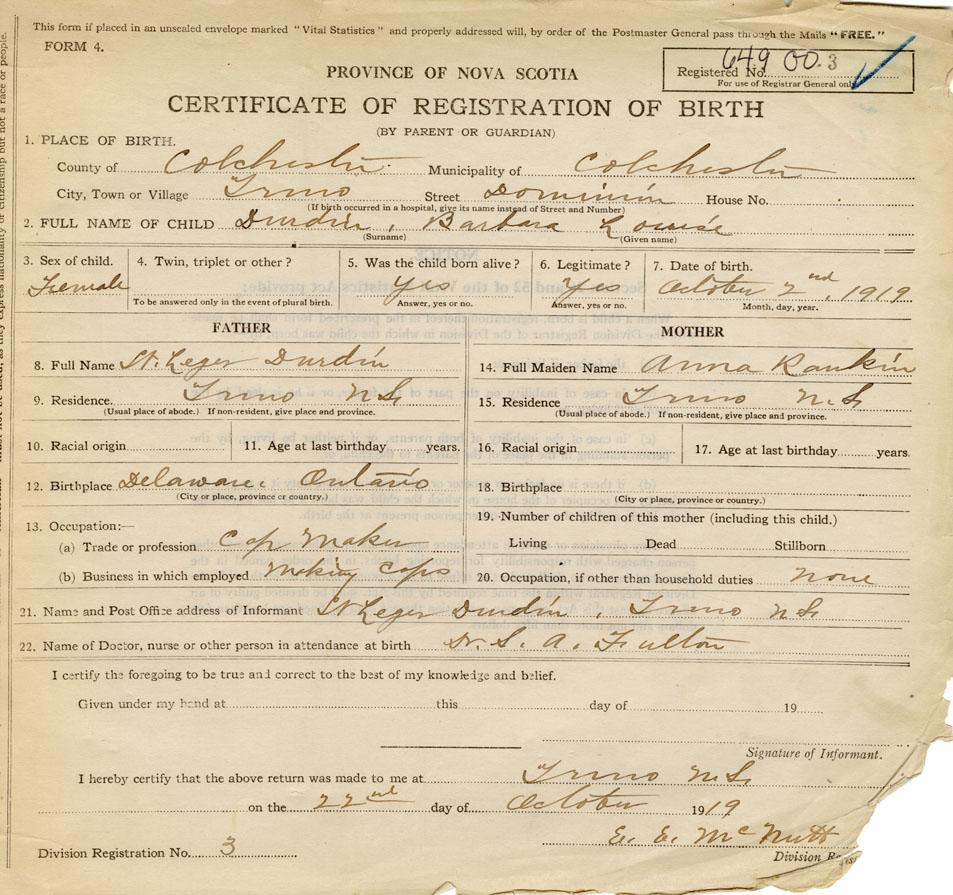 This form if placed in an unsealed envelope marked "Vital Statistics" and properly addressed will, by order of the Postmaster General pass through the Mails "FREE."
FORM 4.
649 00.3
Registered No.
For use of Registrar General only
PROVINCE OF NOVA SCOTIA
CERTIFICATE OF REGISTRATION OF BIRTH
(BY PARENT OR GUARDIAN)
1. PLACE OF BIRTH.
County of Colchester Municipality of Colchester
City, Town or Village Truro Street Dominion House No.
(If birth occurred in a hospital, give its name instead of Street and Number)
2. FULL NAME OF CHILD Durdin, Barbara Louise
(Surname) (Given name)
3. Sex of child. 4. Twin, triplet or other? 5. Was the child born alive? 6. Legitimate? 7. Date of birth.
Female Yes Yes October 2nd, 1919
To be answered only in the event of plural birth. Answer, yes or no. Answer, yes or no. Month, day, year.
FATHER MOTHER
8. Full Name St. Leger Durdin 14. Full Maiden Name Anna Rankin
9. Residence. Truro N.S. 15. Residence Truro N.S.
(Usual place of abode.) If non-resident, give place and province. (Usual place of abode.) If non-resident, give place and province.
10. Racial origin 11. Age at last birthday years. 16. Racial origin 17. Age at last birthday years.
12. Birthplace Delaware, Ontario 18. Birthplace
(City or place, province or country.) (City or place, province or country.)
13. Occupation:— 19. Number of children of this mother (including this child.)
(a) Trade or profession Cap Maker Living Dead Stillborn
(b) Business in which employed Making Caps 20. Occupation, if other than household duties None
21. Name and Post Office address of Informant St Leger Durdin, Truro N.S.
22. Name of Doctor, nurse or other person in attendance at birth Dr. S. A. Fulton
I certify the foregoing to be true and correct to the best of my knowledge and belief.
Given under my hand at this day of 19
Signature of Informant.
I hereby certify that the above return was made to me at Truro N.S.
on the 22nd day of October 1919
E. E. McNutt
Division Registration No. 3 Division